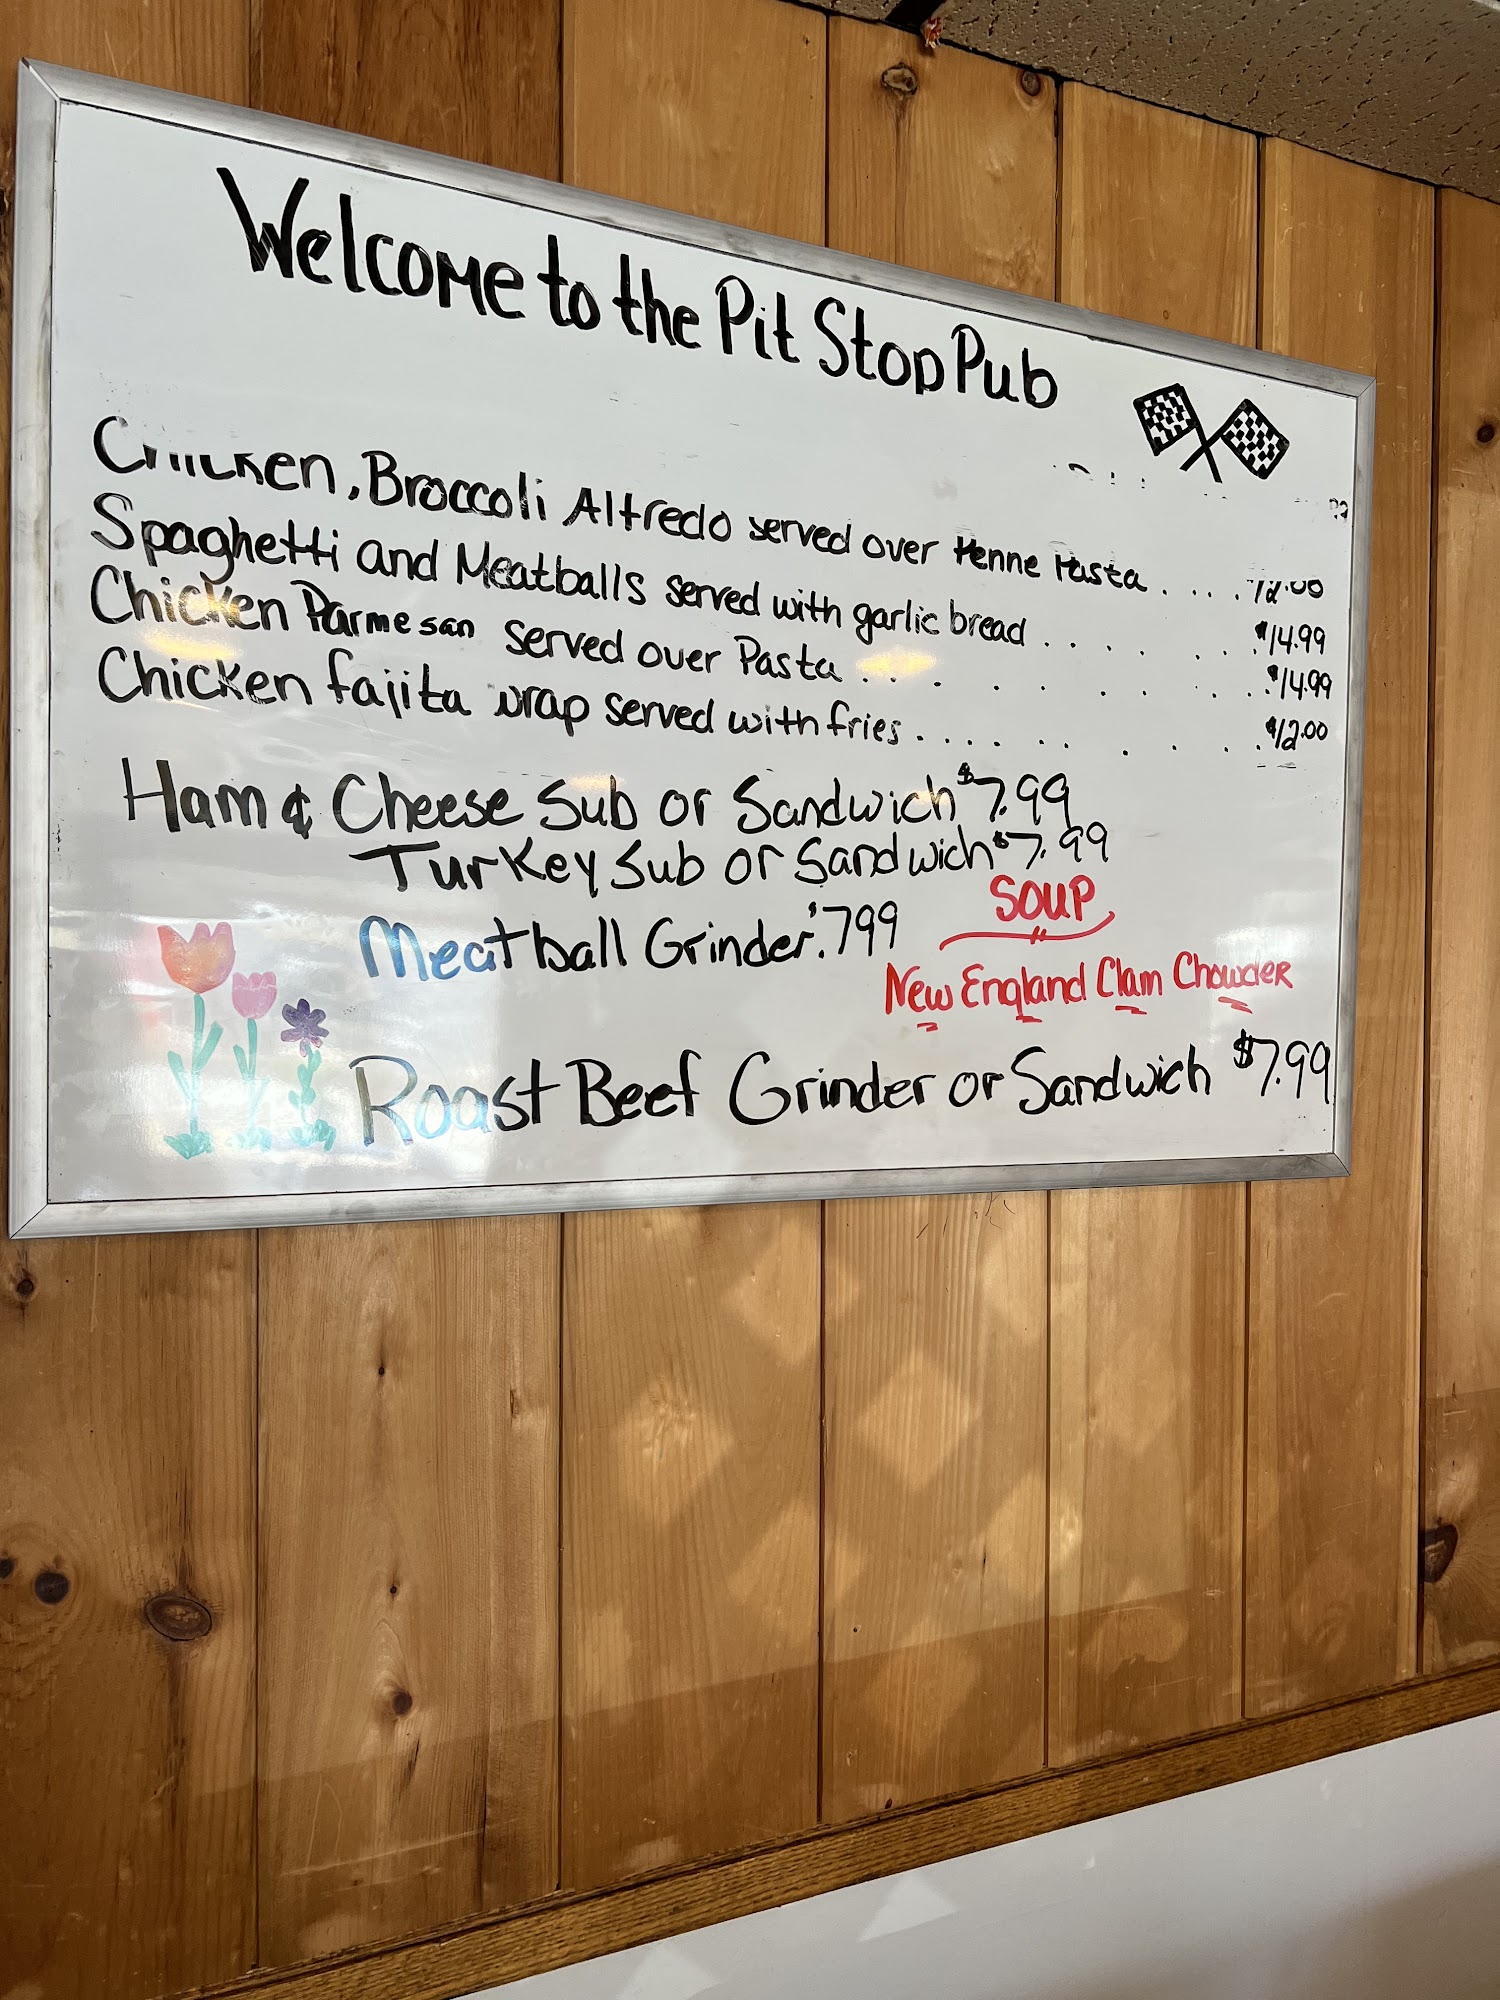 Welcome to the Pit Stop Pub
Chicken, Broccoli Alfredo served over Penne Pasta .... 12.00
Spaghetti and Meatballs served with garlic bread . . . . . . $14.99
Chicken Parmesan served over Pasta . . . . . . . . . . $14.99
Chicken fajita wrap served with fries . . . . . . . . . . $12.00
Ham & Cheese Sub or Sandwich $7.99
Turkey Sub or Sandwich $7.99
SOUP
Meatball Grinder $.799
New England Clam Chowder
Roast Beef Grinder or Sandwich $7.99